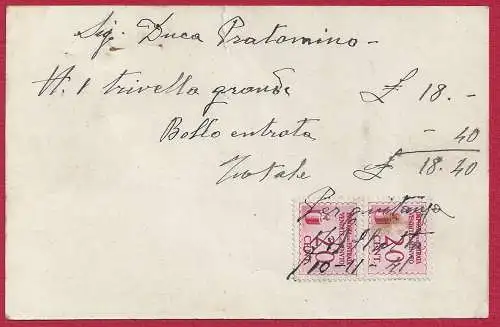 Sig. Duca Pratomino -
N. 1 trivella grande £ 18. -
Bollo entrata - 40
Totale £ 18.40
Per quitanza
10 11 41
20 CENT. 20 CENT.